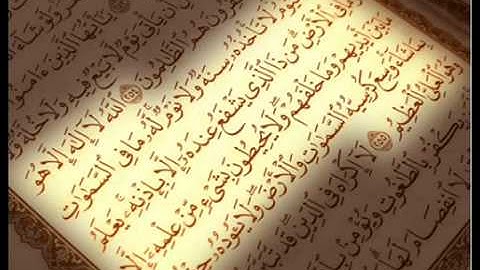 يَٰٓأَيُّهَا ٱلَّذِينَ ءَامَنُوٓا۟
يَأْتِىَ يَوْمٌ لَّا بَيْعٌ فِيهِ وَلَا خُلَّةٌ
هُمُ ٱلظَّٰلِمُونَ ٢٥٤ ٱللَّهُ لَآ إِلَٰهَ إِلَّا هُوَ
لَا تَأْخُذُهُۥ سِنَةٌ وَلَا نَوْمٌ لَّهُۥ مَا فِى ٱلسَّمَٰوَٰتِ
فِى ٱلْأَرْضِ مَن ذَا ٱلَّذِى يَشْفَعُ عِندَهُۥٓ إِلَّا بِإِذْنِهِۦ يَعْلَمُ
بَيْنَ أَيْدِيهِمْ وَمَا خَلْفَهُمْ وَلَا يُحِيطُونَ بِشَىْءٍ مِّنْ عِلْمِهِۦٓ إِلَّا
شَآءَ وَسِعَ كُرْسِيُّهُ ٱلسَّمَٰوَٰتِ وَٱلْأَرْضَ وَلَا يَـُٔودُهُۥ
وَهُوَ ٱلْعَلِىُّ ٱلْعَظِيمُ ٢٥٥ لَآ إِكْرَاهَ فِى ٱلدِّينِ قَد تَّبَيَّنَ
يَكْفُرْ بِٱلطَّٰغُوتِ وَيُؤْمِنۢ
لَا ٱنفِصَامَ لَهَا